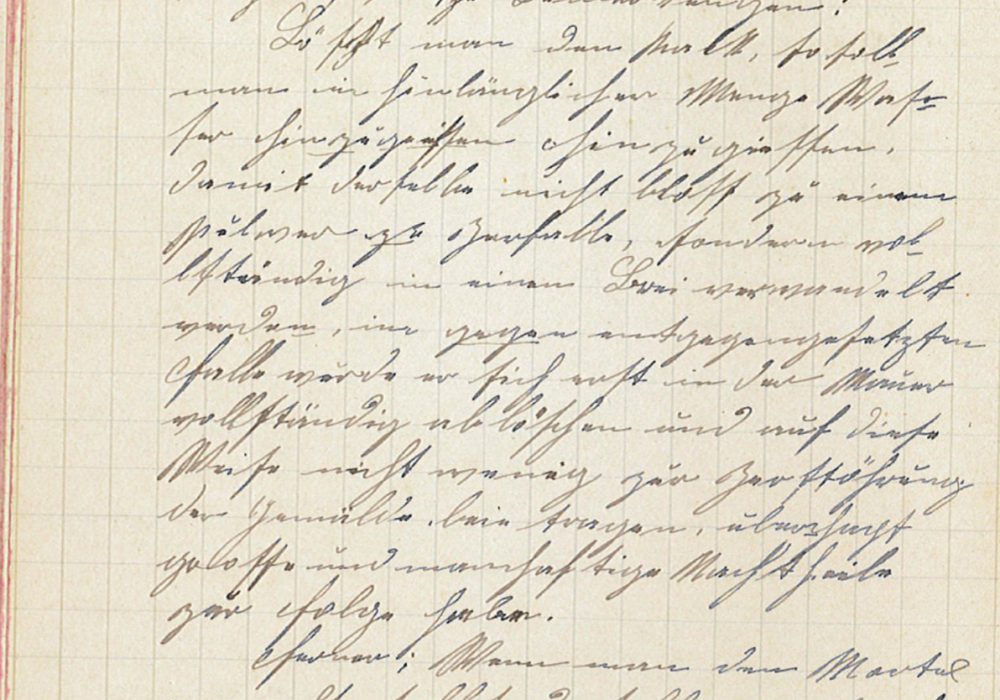 Löscht man den Kalk, so soll-
man in hinlänglicher Menge Was-
ser hinzugeissen hinzugiessen,
damit derselbe nicht bloss zu einem
Pulver zu zerfalle, sondern vol-
lständig in einen Brei verwandelt
werden, im gegen entgegengesetzten
Falle würde er sich erst in der Mauer
vollständig ablöschen und auf diese
Weise nicht wenig zur Zerstöhrung
der Gemälde beie tragen, überhaupt
grosse und mannhaftige Nachtheile
zur Folge habe.
Ferner; Wenn man den Mörtel